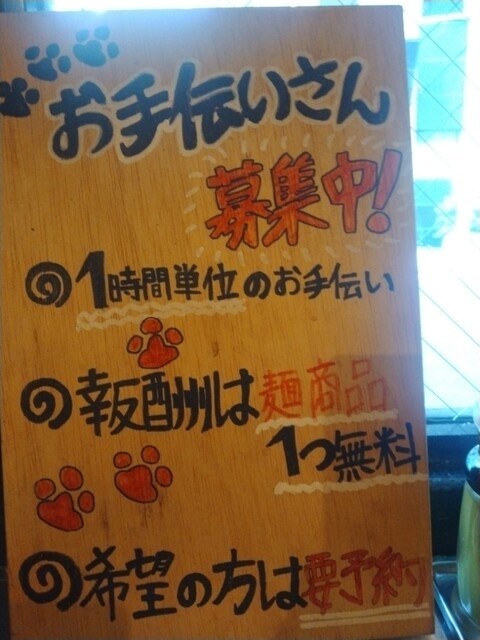 お手伝いさん
募集中!
1時間単位のお手伝い
報酬は麺商品
1つ無料
希望の方は要予約